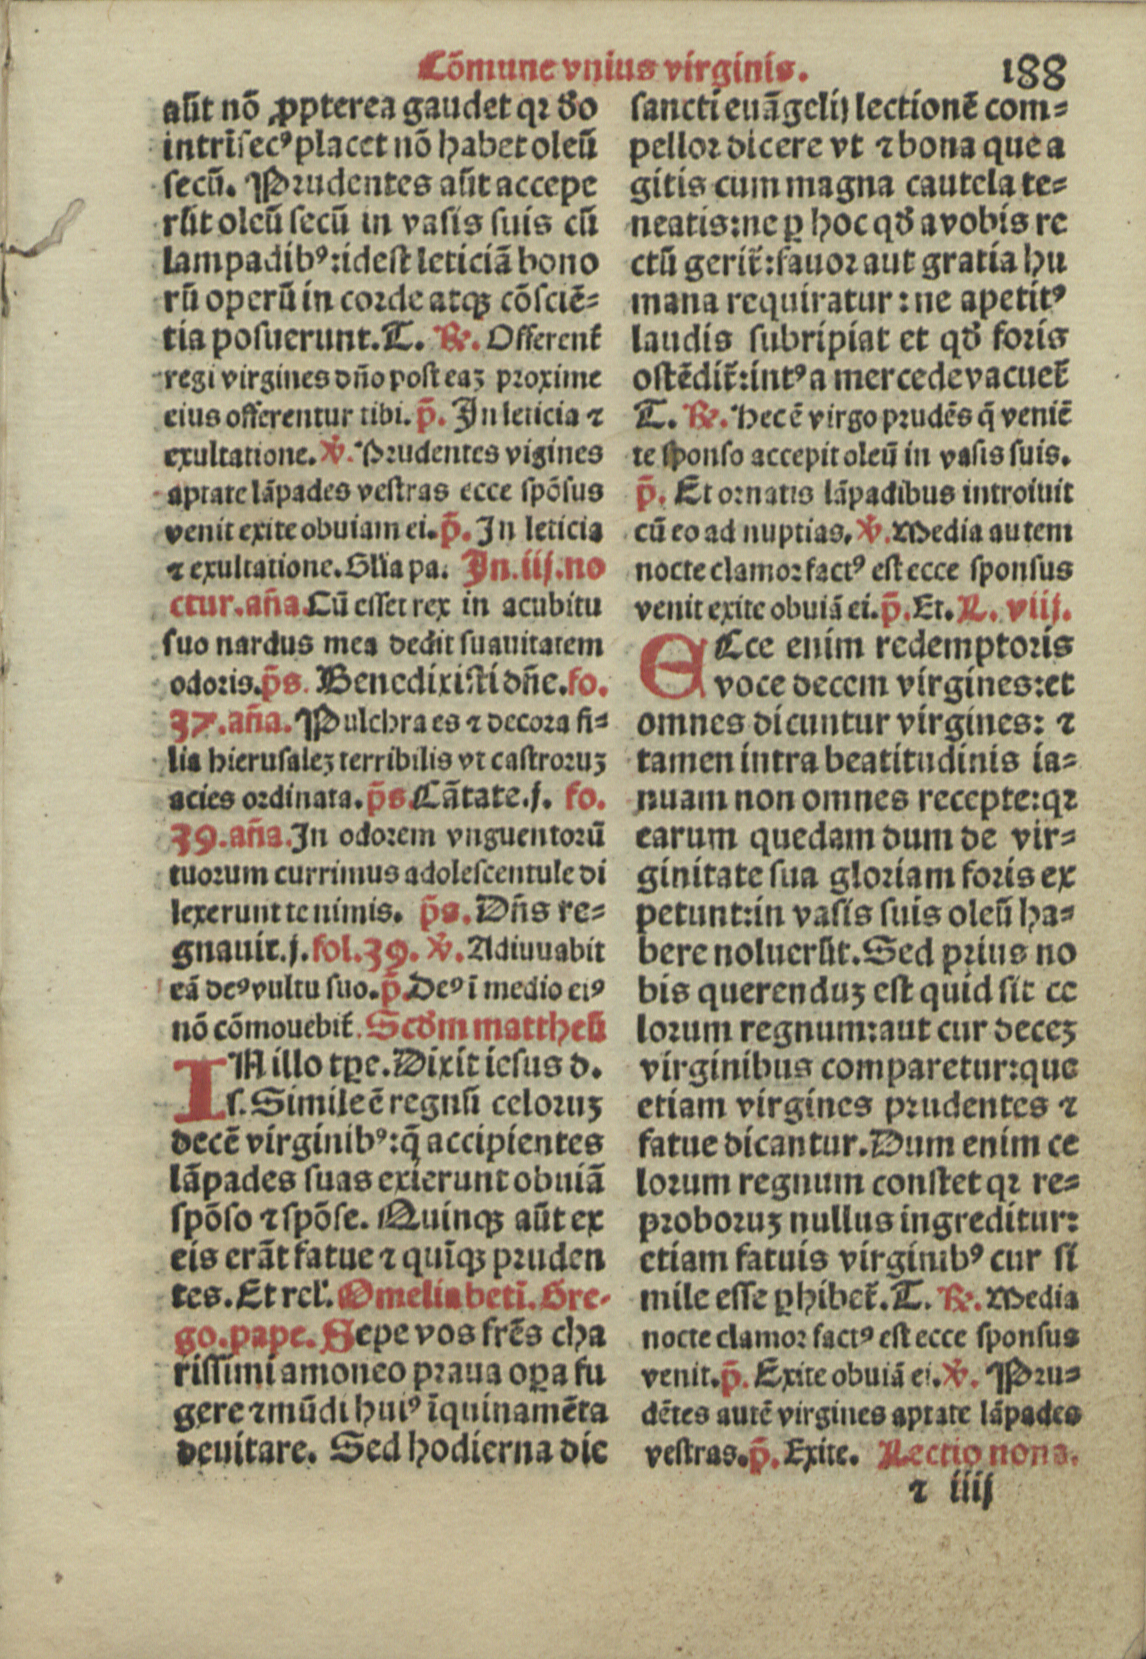 Cōmune vnius virginis. 188
aūt nō ꝓpterea gaudet qꝛ đo
intrīsecꝰ placet nō habet oleū
secū. Prudentes aūt accepe
rūt oleū secū in vasis suis cū
lampadibꝰ: idest leticiā bono
rū operū in corde atqꝫ cōsciē⸗
tia posuerunt. T. ℟. Offerent̄
regi virgines dn̄o post eaꝫ proxime
eius offerentur tibi. p̄. In leticia ⁊
exultatione. ℣. Prudentes vigines
aptate lāpades vestras ecce spōsus
venit exite obuiam ei. p̄. In leticia
⁊ exultatione. Glīa pa. In .iij. no
ctur. an̄a. Cū esset rex in acubitu
suo nardus mea dedit suauitatem
odoris. p̄s. Benedixisti dn̄e. fo.
37. an̄a. Pulchra es ⁊ decora fi⸗
lia hierusaleꝫ terribilis vt castroruꝫ
acies ordinata. p̄s. Cātate .j. fo.
39. an̄a. In odorem vnguentorū
tuorum currimus adolescentule di
lexerunt te nimis. p̄s. Dn̄s re⸗
gnauit .j. fol. 39. ℣. Adiuuabit
eā deꝰ vultu suo. p̄. Deꝰ ī medio eiꝰ
nō cōmouebit̄. Scđm mattheū
IN illo tꝑe. Dixit iesus d.
s. Simile ē regnū celoruꝫ
decē virginibꝰ: q̄ accipientes
lāpades suas exierunt obuiā
spōso ⁊ spōse. Quinqꝫ aūt ex
eis erāt fatue ⁊ quīqꝫ pruden
tes. Et rel̄. Omelia beti̅. Gre⸗
go. pape. Sepe vos frēs cha
rissimi amoneo praua oꝑa fu
gere ⁊ mūdi huiꝰ īquinamēta
deuitare. Sed hodierna die
sancti euāgelij lectionē com⸗
pellor dicere vt ⁊ bona que a
gitis cum magna cautela te⸗
neatis: ne ꝑ hoc qđ a vobis re
ctū gerit̄: fauor aut gratia hu
mana requiratur: ne apetitꝰ
laudis subripiat et qđ foris
ostēdit̄: intꝰ a mercede vacuet̄
T. ℟. Hec ē virgo prudēs q̄ veniē
te sponso accepit oleū in vasis suis.
p̄. Et ornatis lāpadibus introiuit
cū eo ad nuptias. ℣. Media autem
nocte clamor factꝰ est ecce sponsus
venit exite obuiā ei. p̄. Et. L. viij.
ECce enim redemptoris
voce decem virgines: et
omnes dicuntur virgines: ⁊
tamen intra beatitudinis ia⸗
nuam non omnes recepte: qꝛ
earum quedam dum de vir⸗
ginitate sua gloriam foris ex
petunt: in vasis suis oleū ha⸗
bere noluerūt. Sed prius no
bis querenduꝫ est quid sit ce
lorum regnum: aut cur deceꝫ
virginibus comparetur: que
etiam virgines prudentes ⁊
fatue dicantur. Dum enim ce
lorum regnum constet qꝛ re⸗
proboruꝫ nullus ingreditur:
etiam fatuis virginibꝰ cur si
mile esse ꝑhibet̄. T. ℟. Media
nocte clamor factꝰ est ecce sponsus
venit. p̄. Exite obuiā ei. ℣. Pru⸗
dētes autē virgines aptate lāpades
vestras. p̄. Exite. Lectio nona.
⁊ iiij